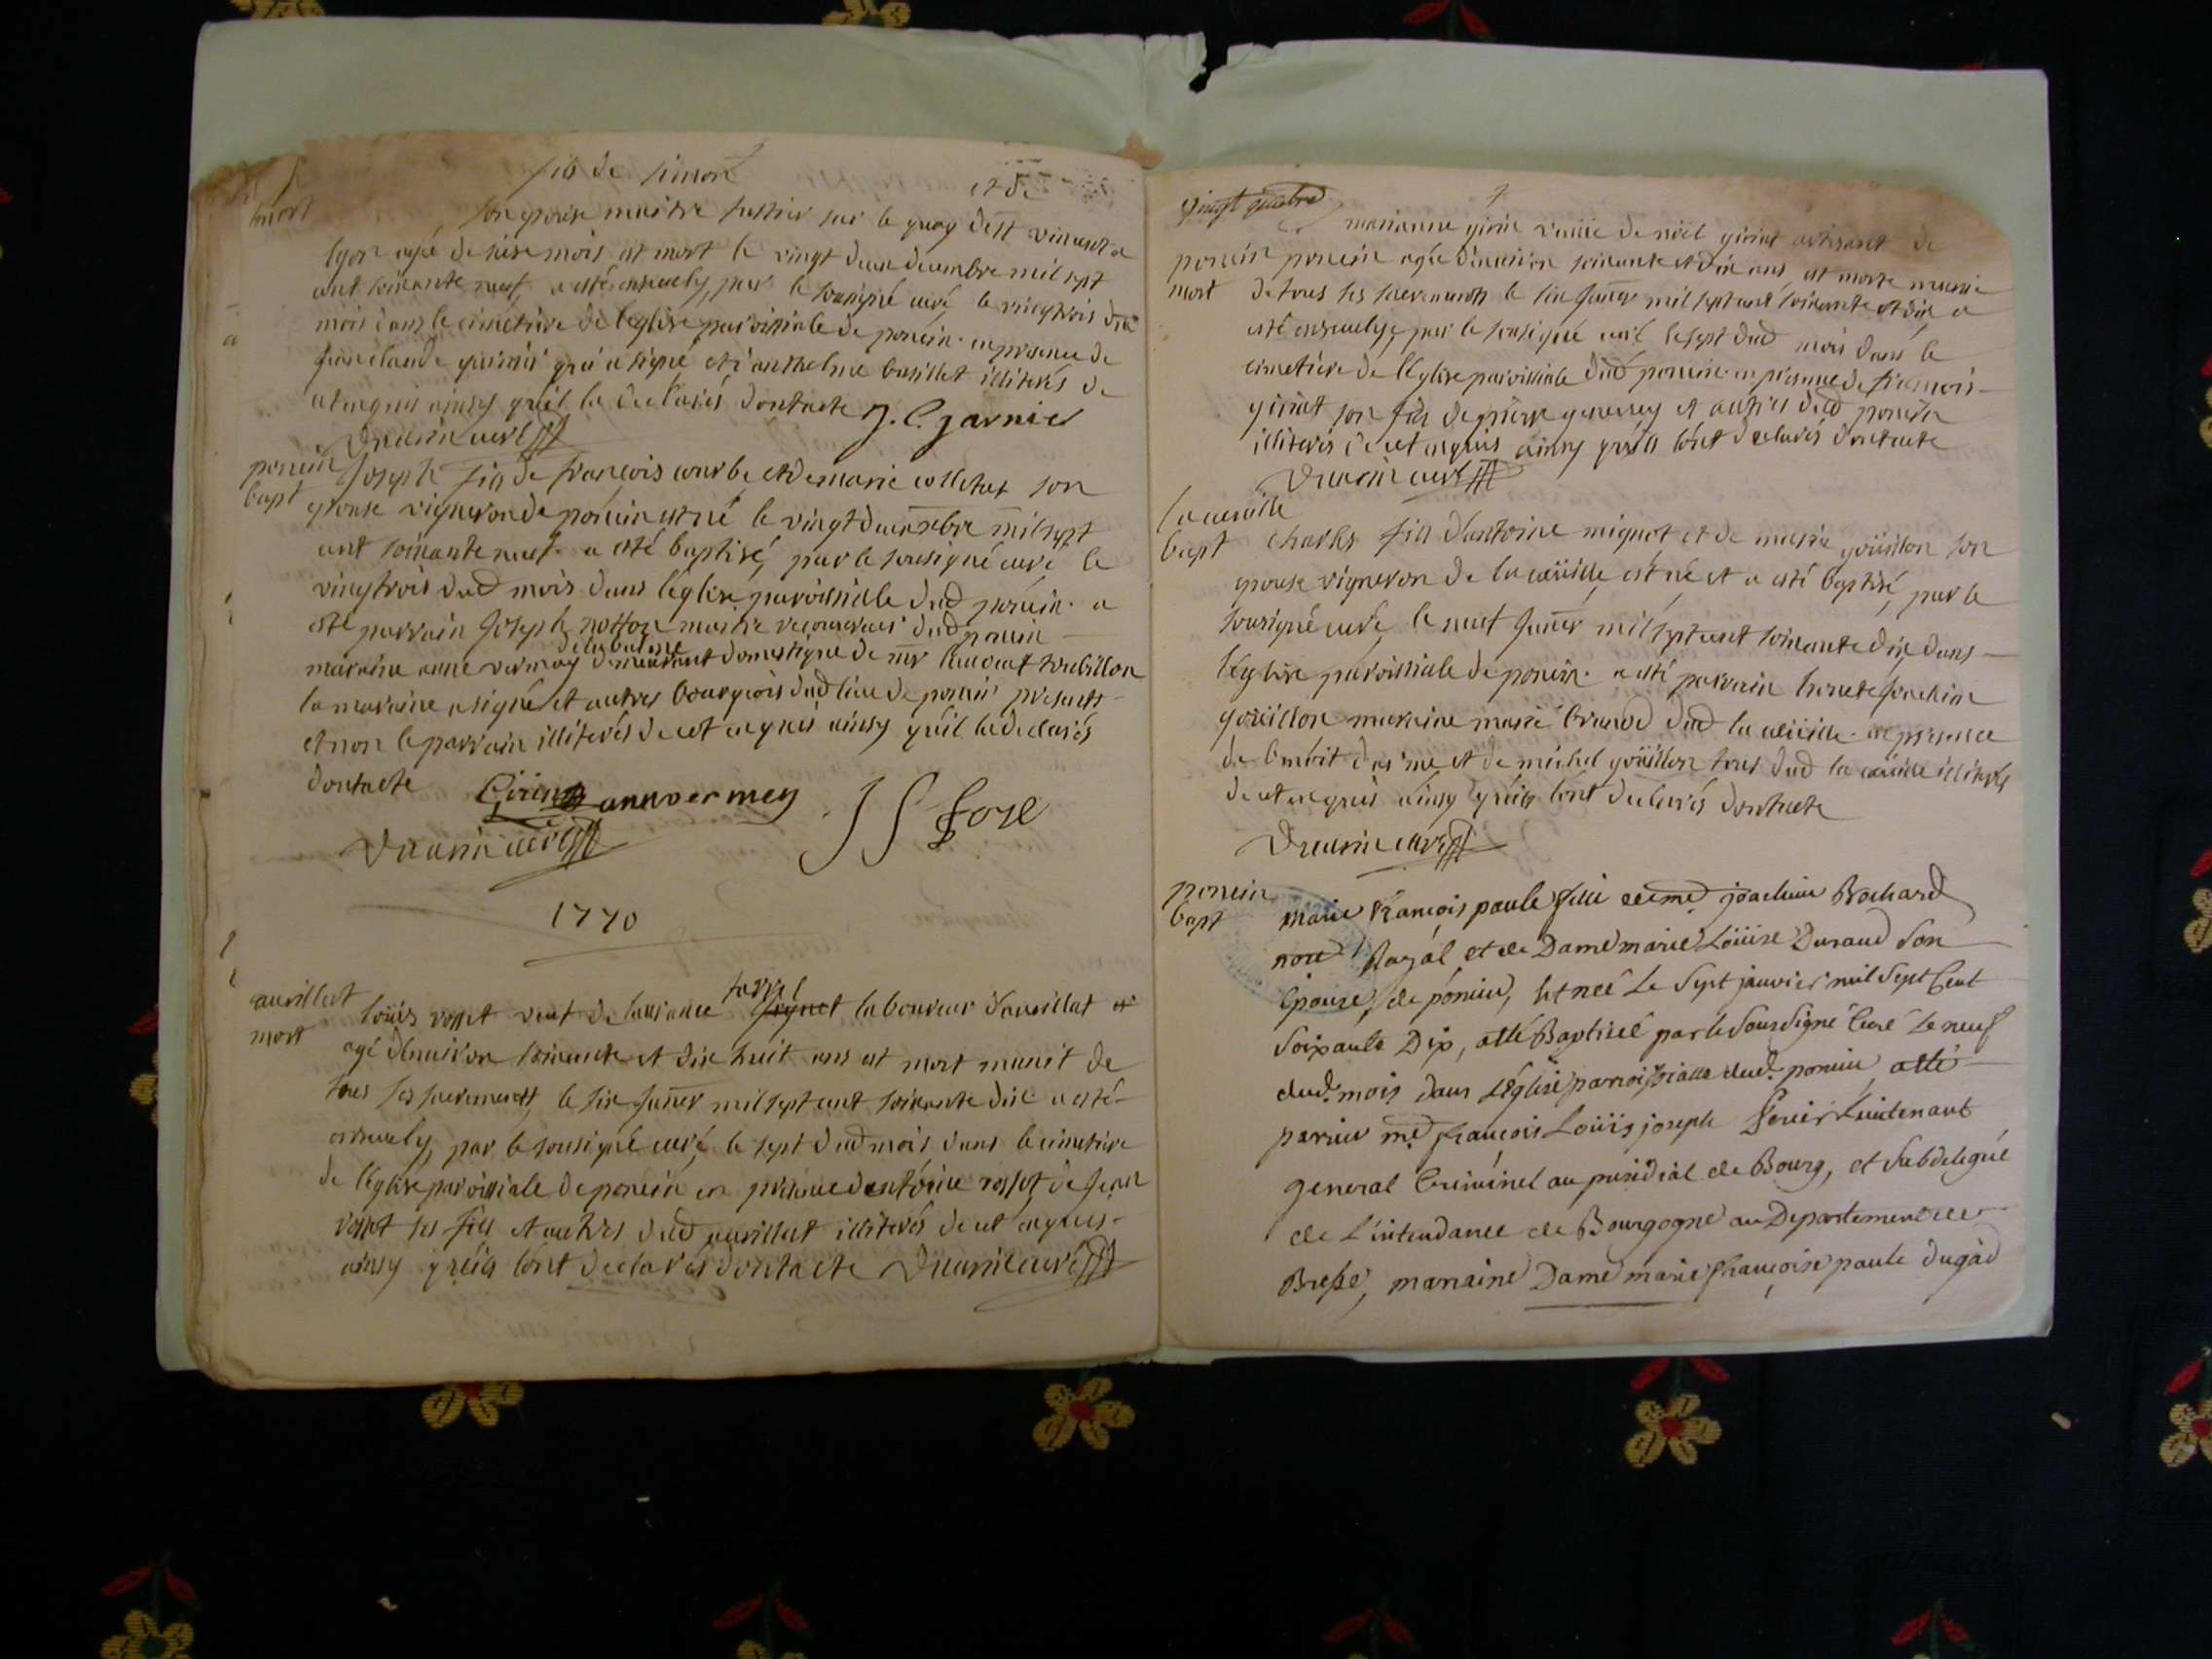 fils de simon et de
mort son epouse maitre sur le quay de st vincent a
lyon agé de seise mois est mort le vingt deux decembre mil sept
cent soixante neuf, a esté ensevely, par le sousigné curé le vingtrois dud
mois dans le cimetiere de l'eglise paroissiale de poncin en presence de
jean claude garnier qui a signé et d'anthelme illiterés de
ce enquis ainsy qu'il la declarés dont acte J. C. garnier
Druerin curé
poncin joseph fils de françois courbe et de marie son
bapt epouse vigneron de poncin est né le vingt deux xbre mil sept
cent soixante neuf a esté baptisé, par le sousigné curé le
vingtrois dud mois dans l'eglise paroissialle dud poncin a
esté parrain joseph maitre dud poncin
maraine anne vermay demeurant domestique de mr
la maraine a signé et autres bourgeois dud lieu de poncin presents
et non le parrain illiterés de cet enquis ainsy qu'il la declarés
dont acte annvermey
Druerin curé
1770
auvillat louis rosset veuf de laurance laboureur d'auvillat
mort agé d'environ soixante et dix huit ans est mort munit de
tous ses sacrements, le six janvr mil sept cent soixante dix a esté
ensevely, par le sousigné curé, le sept dud mois, dans le cimetiere
de l'eglise paroissiale de poncin en presence dantoine rosset de jean
rosset ses fils et autres dud auvillat illiterés de cet enquis
ainsy qu'ils lont declarés dont acte Druerin curé
vingt quatre
marianne girin veuve de noël giriat artisant de
poncin poncin agée d'environ soixante et dix ans est morte munie
mort de tous ses sacrements le six janvr mil sept cent soixante et dix a
esté ensevelye, par le sousigné curé le sept dud mois dans le
cimetiere de l'Eglise paroissiale dud poncin en presence de françois
giriat son fils de pierre et autres dud poncin
illiterés de cet enquis ainsy qu'ils lont declarés dont acte
Druerin curé
la cueille
bapt charles fils d'antoine mignot et de marie goüillon son
epouse vigneron de la cüeille, est né et a esté baptisé, par le
sousigné curé, le neuf janvr mil sept cent soixante dix, dans
l'eglise paroissiale de poncin a esté parrain honete joachim
goüillon maraine marie brunod dud la cüeille en presence
de et de michel goüillon tous dud la cüeille illiterés
de cet enquis ainsy qu'ils lont declarés dont acte
Druerin curé
poncin
bapt marie françois paule fille de me joachim Brochard
Royal, et de Dame marie Loüise Durand son
Epouse, de poncin, est née Le Sept janvier mil Sept Cent
Soixante Dix, a été Baptisée par le Soussigné Curé Le neuf
dud. mois dans L'Église parroissialle dud. poncin, a été
parrin me François Loüis joseph Lieutenant
general Criminel au presidial de Bourg, et Subdelegué
de L'intendance de Bourgogne au Departement de
Bresse, marraine Dame marie françoise paule dugad